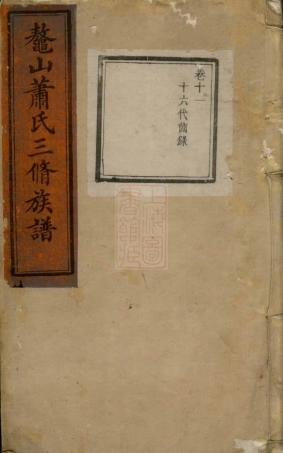 鼇山蕭氏三脩族譜
卷十一
十六代齒錄
上海圖書館藏